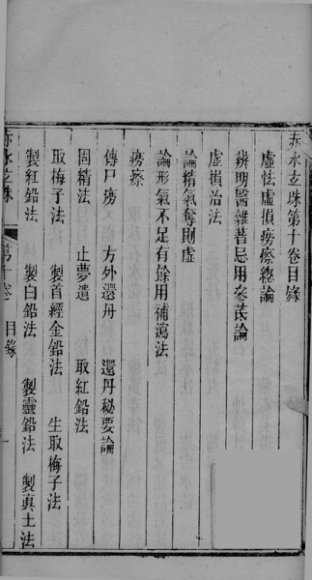 赤水玄珠第十卷目錄
虛怯虛損癆瘵總論
辨明醫雜著忌用參芪論
虛損治法
論精氣奪則虛
論形氣不足有餘用補瀉法
癆瘵
傳尸癆 方外還丹 還丹秘要論
固精法 止夢遺 取紅鉛法
取梅子法 製首經金鉛法 生取梅子法
製紅鉛法 製白鉛法 製靈鉛法 製真土法
赤水玄珠 第十卷 目錄